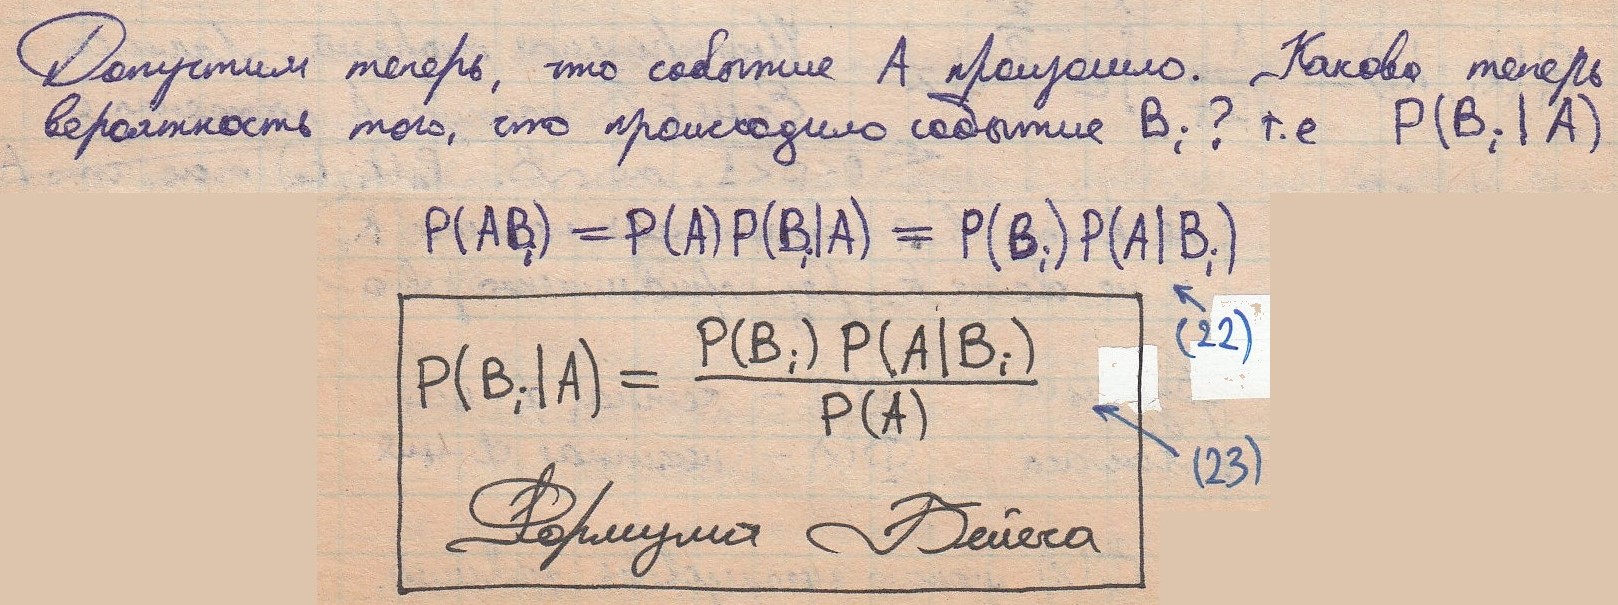 Допустим теперь, что событие A произошло. Какова теперь
вероятность того, что происходило событие Bᵢ? т.е P(Bᵢ|A)
P(ABᵢ) = P(A)P(Bᵢ|A) = P(Bᵢ)P(A|Bᵢ)
(22)
P(Bᵢ|A) = P(Bᵢ) P(A|Bᵢ) / P(A)
(23)
Формула Бейеса